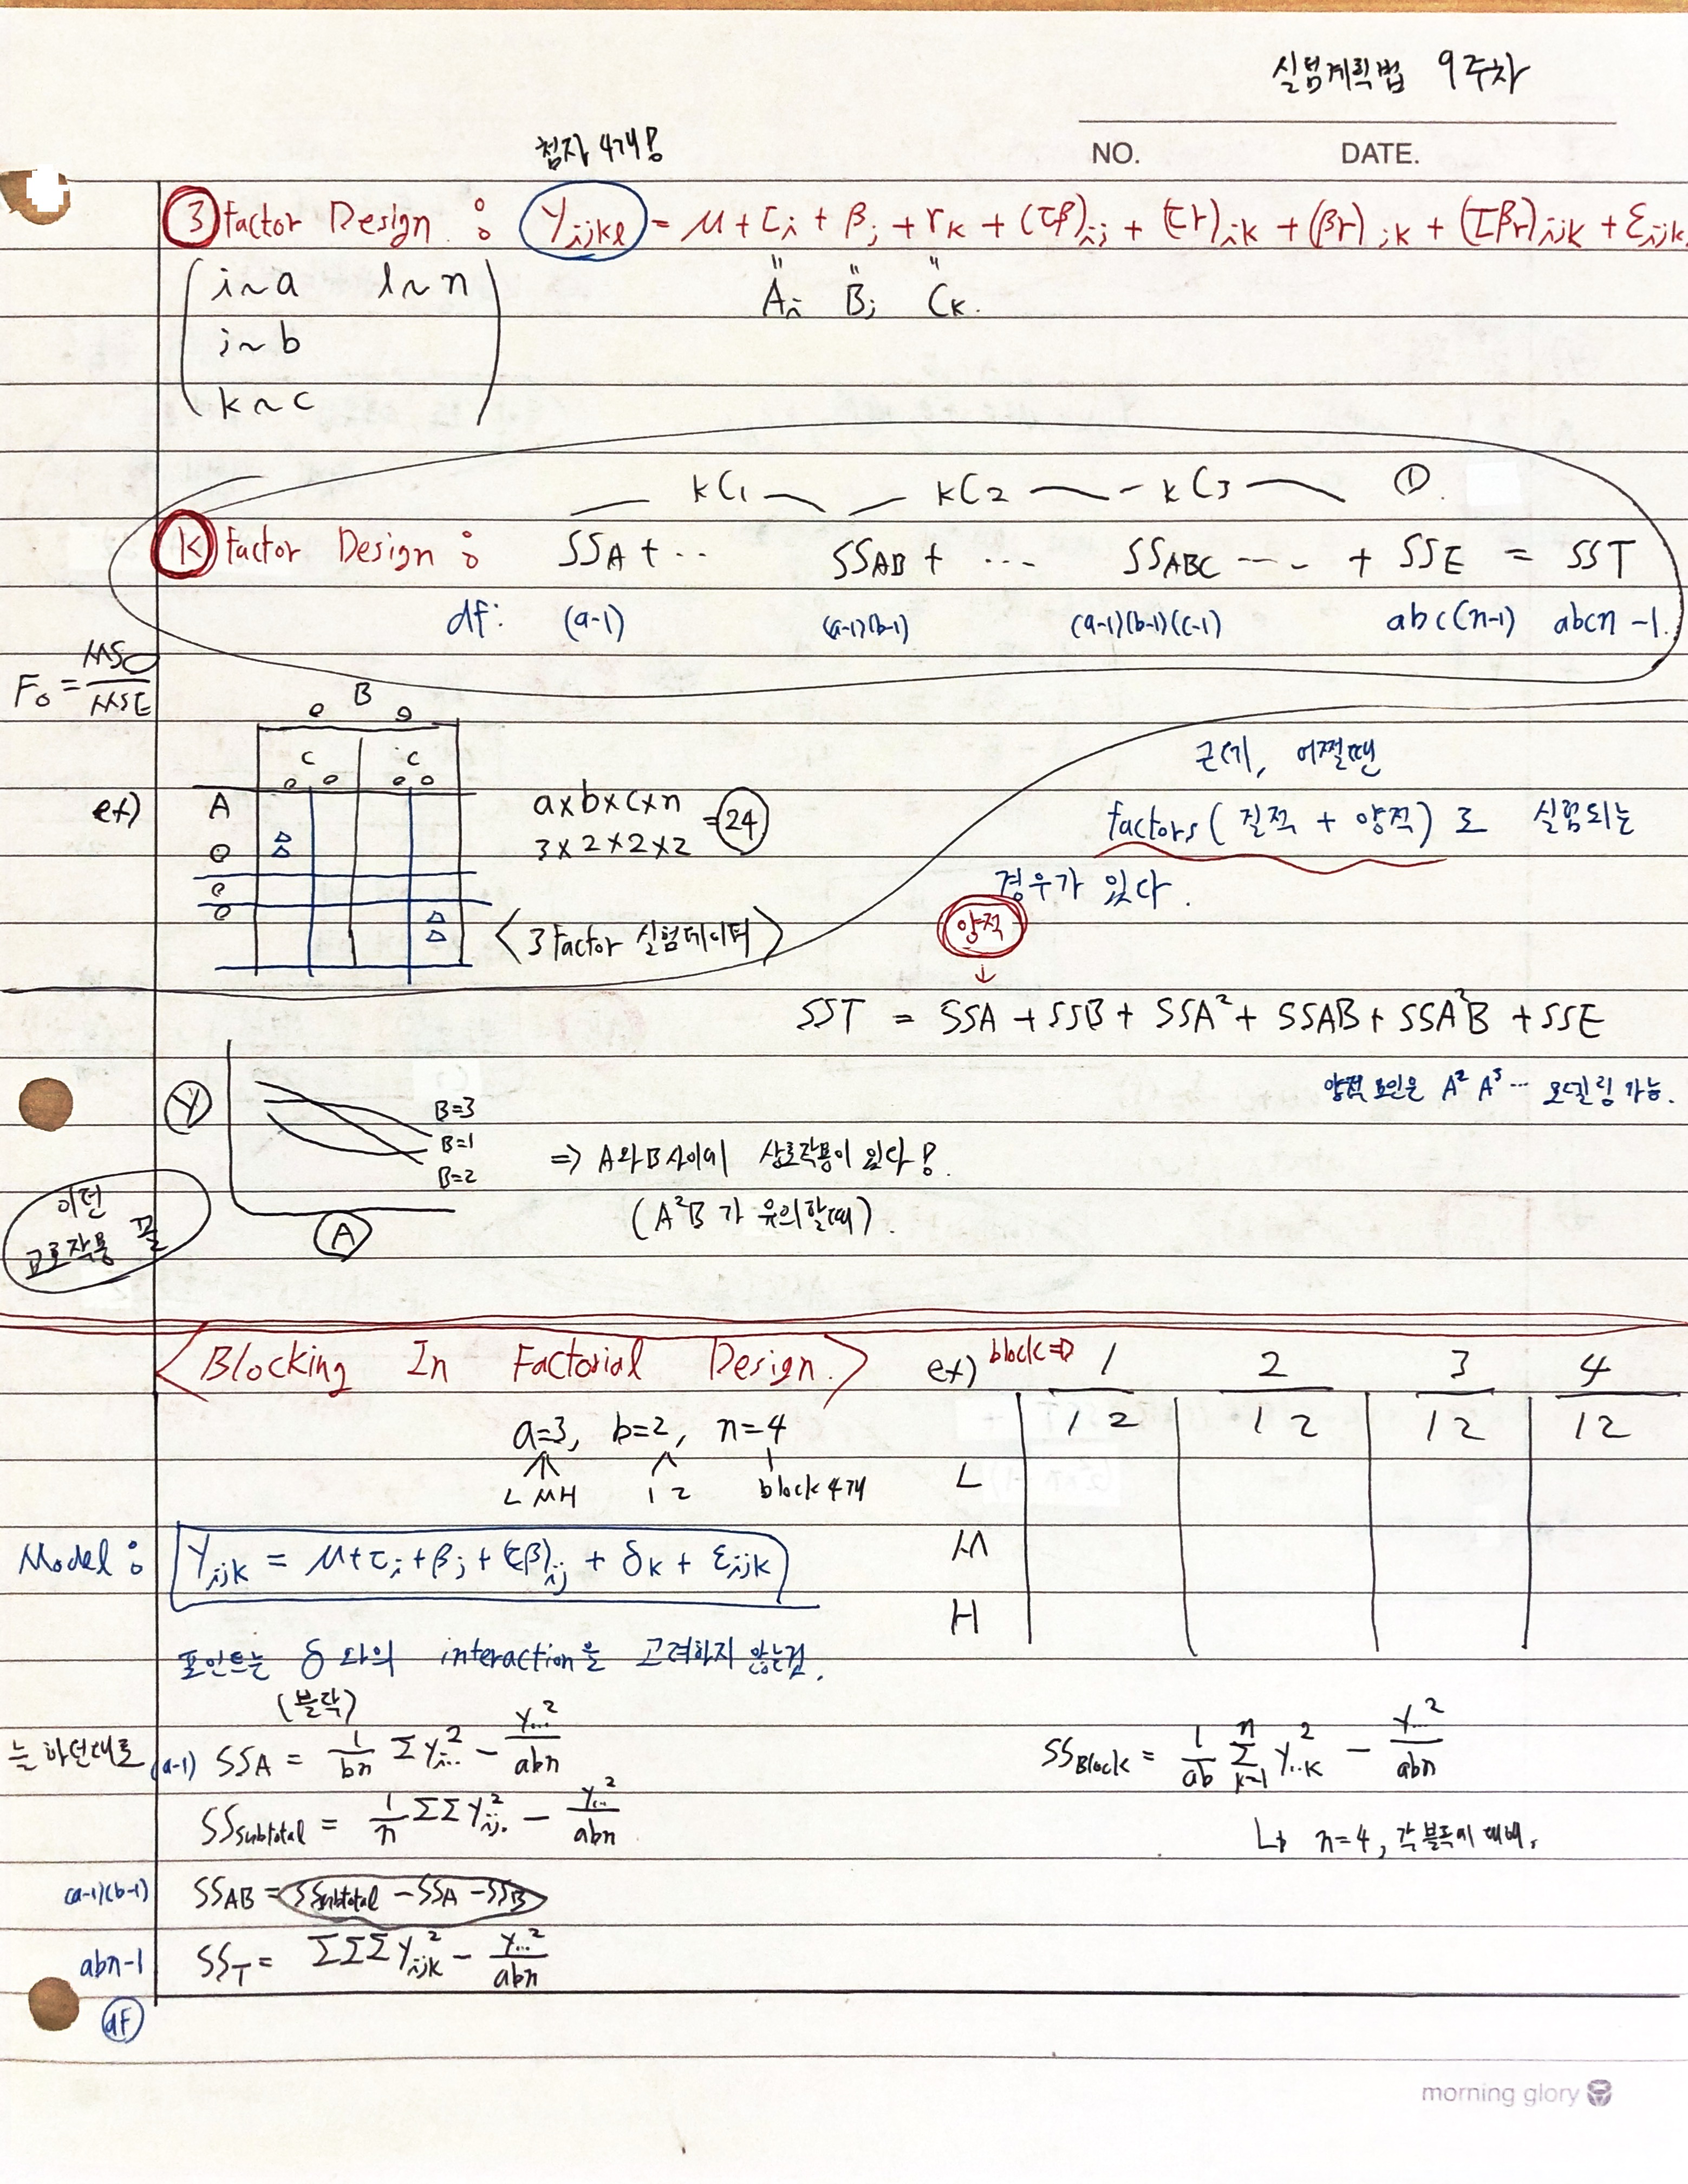 실험계획법 9주차
NO. DATE.
첨자 4개!
③ factor Design : Yijkl = μ + τi + βj + rk + (τβ)ij + (τr)ik + (βr)jk + (τβr)ijk + εijk
i~a l~n
" " "
Ai Bj Ck.
j~b
k~c
kC1 kC2 kC3 ①.
ⓚ factor Design : SSA + .. SSAB + ... SSABC ---- + SSE = SST
df: (a-1) (a-1)(b-1) (a-1)(b-1)(c-1) abc(n-1) abcn -1.
F0 = MS○/MSE
B
C C
ex) A
a×b×c×n
3×2×2×2 = 24
<3 factor 실험데이터>
근데, 어쩔땐
factors (질적 + 양적) 로 실험되는
경우가 있다.
양적
↓
SST = SSA + SSB + SSA² + SSAB + SSA²B + SSE
양적 요인은 A² A³ ... 모델링 가능.
Y
B=3
B=1
B=2
A
⇒ A와 B 사이에 상호작용이 있다!
(A²B 가 유의할때).
이런
교호작용 꼴
<Blocking In Factorial Design.>
ex) block⇒ 1 2 3 4
1 2 1 2 1 2 1 2
L
M
H
a=3, b=2, n=4
L M H 1 2 block 4개
Model : Yijk = μ + τi + βj + (τβ)ij + δk + εijk
포인트는 δ 와의 interaction을 고려하지 않는점.
(블락)
는 하던대로 (a-1) SSA = 1/bn Σ yi..² - y...²/abn
SSBlock = 1/ab Σ(k=1~n) y..k² - y...²/abn
SSsubtotal = 1/n ΣΣ yij.² - y...²/abn
↳ n=4, 각 블록에 대해.
(a-1)(b-1) SSAB = SSsubtotal - SSA - SSB
abn-1 SST = ΣΣΣ yijk² - y...²/abn
df
morning glory